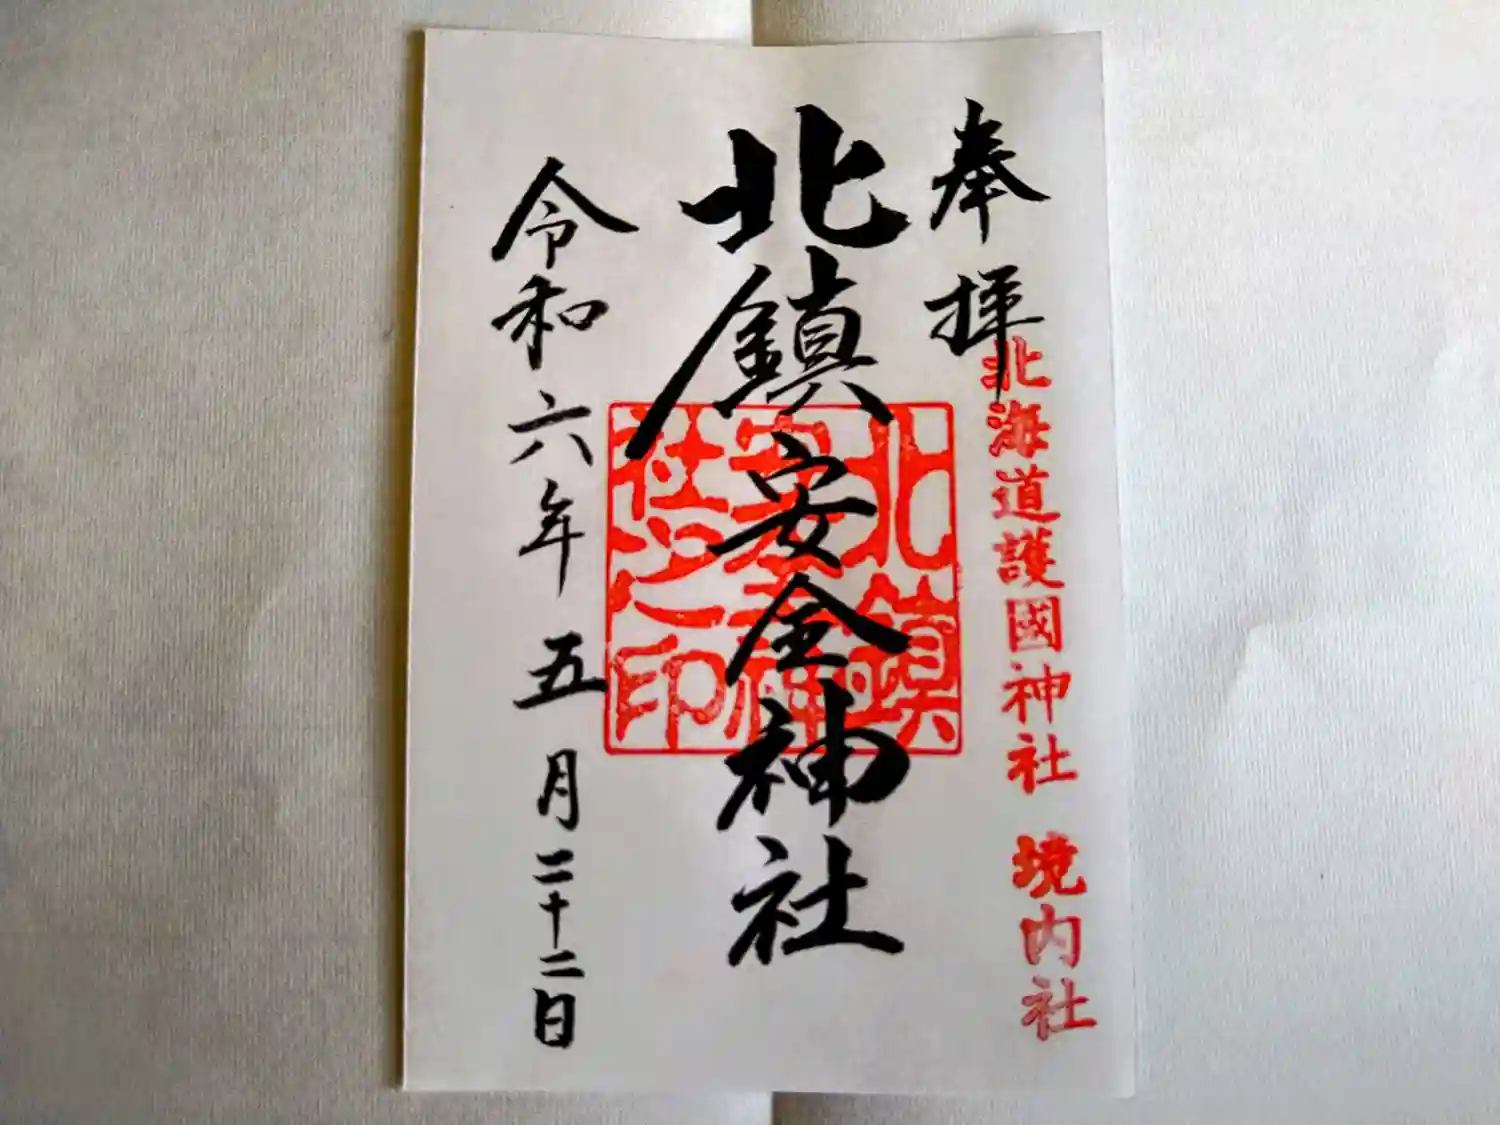 奉拝
北海道護國神社 境内社
北鎮安全神社
北鎮
安全神
社之印
令和六年五月二十二日